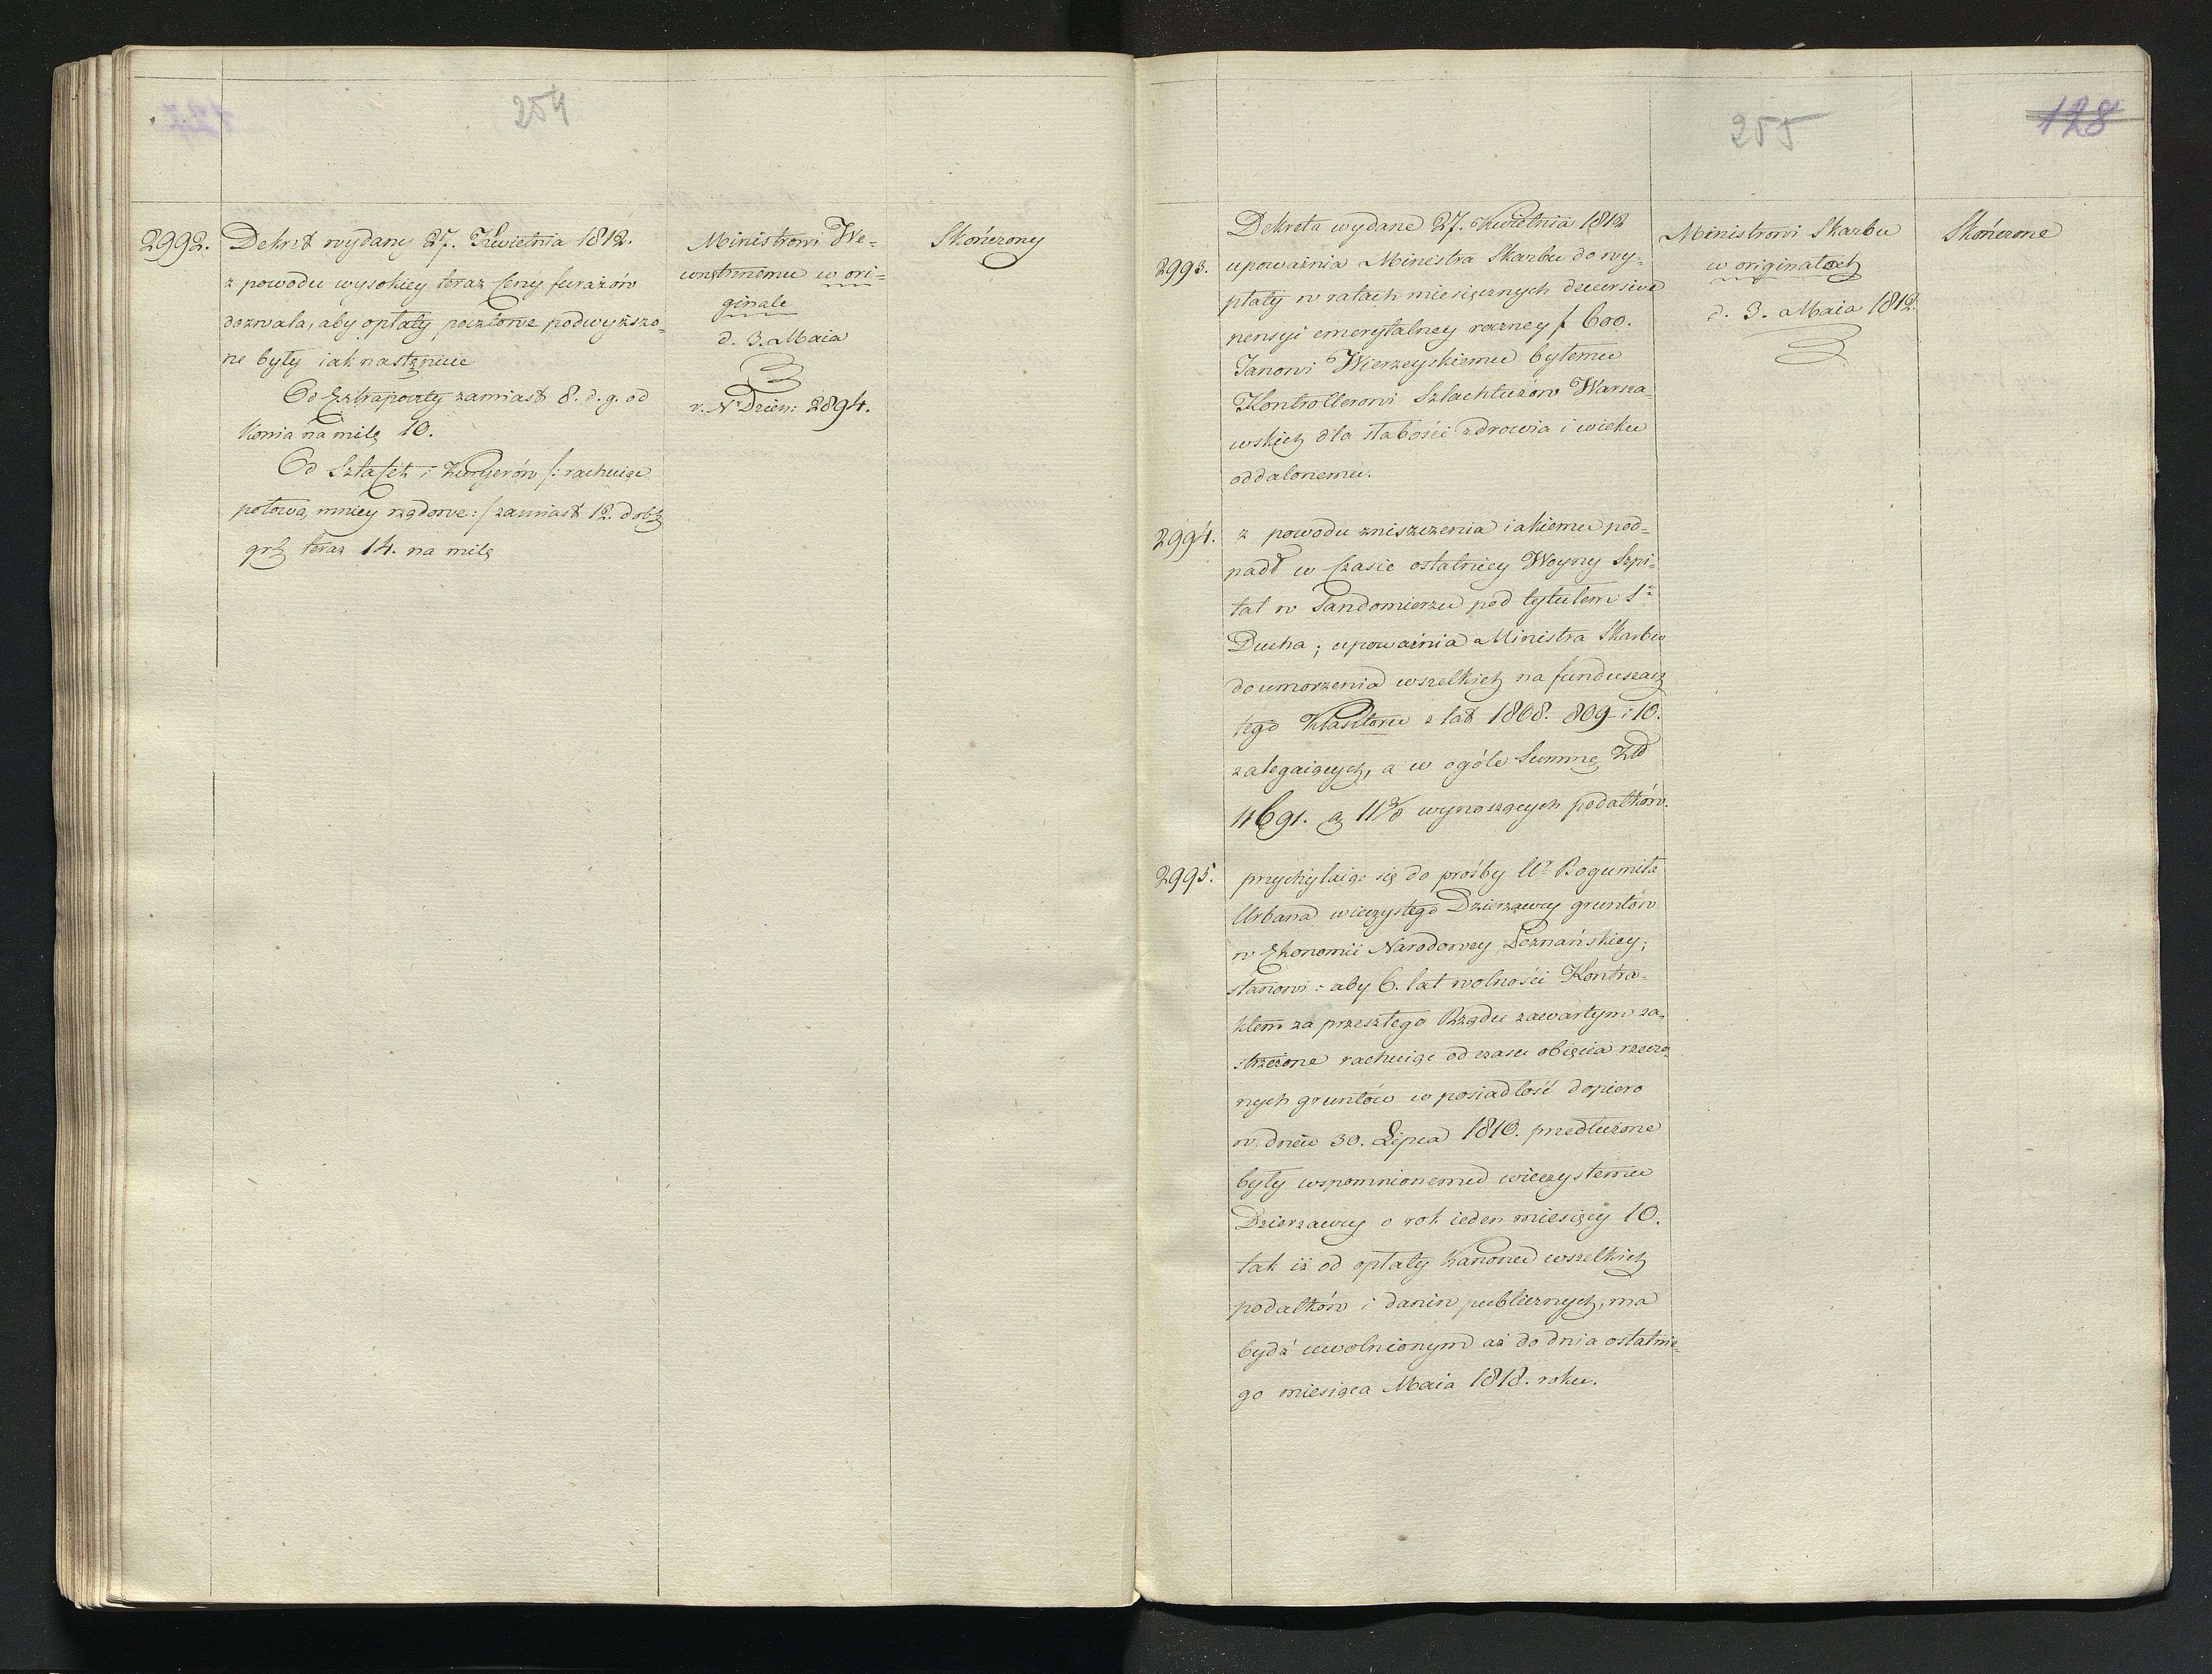 254
2992.
Dekret wydany 27. Kwietnia 1812.
z powodu wysokiey teraz Ceny furażów
dozwala, aby opłaty pocztowe podwyższo-
ne były iak następuie
Od Extrapoczty zamiast 8. d. g. od
Konia na milę 10.
Od Sztafet i Kuryerów /: rachuiąc
połową mniey rządowe :/ zamiast 12. dobch
grch teraz 14. na milę
Ministrowi We-
wnętrznemu w ori-
ginale
d. 3. Maia
v. Nr Dzien: 2894.
Skończony
255
128
Dekreta wydane 27. Kwietnia 1812
2993.
upoważnia Ministra Skarbu do wy-
płaty w ratach miesięcznych decursive
pensyi emerytalney roczney f 600.
Janowi Wierzeyskiemu byłemu
Kontrollerowi Szlachtuzów Warsza-
wskich dla słabości zdrowia i wieku
oddalonemu.
2994.
z powodu zniszczenia iakiemu pod-
padł w Czasie ostatniey Woyny Szpi-
tal w Sandomierzu pod tytułem S°
Ducha; upoważnia Ministra Skarbu
do umorzenia wszelkich na funduszach
tego Klasztoru z lat 1808. 809 i 10.
zalegaiących, a w ogóle Summę Złł
4691. g 11 2/3 wynoszących podatków.
2995.
przychylaiąc się do prośby Ur Bogumiła
Urbana wieczystego Dzierzawcy gruntów
w Ekonomii Narodowey Poznańskiey;
stanowi: aby 6. lat wolności Kontra-
ktem za przeszłego Rządu zawartym za-
strzeżone rachuiąc od czasu obięcia rzeczo-
nych gruntów w posiadłość dopiero
w dniu 30. Lipca 1810. przedłużone
były wspomnionemu wieczystemu
Dzierzawcy o rok ieden miesięcy 10.
tak iż od opłaty Kanonu wszelkich
podatków i danin publicznych, ma
bydź uwolnionym aż do dnia ostatnie-
go miesiąca Maia 1818. roku.
Ministrowi Skarbu
w originałach
d. 3. Maia 1812.
Skończone